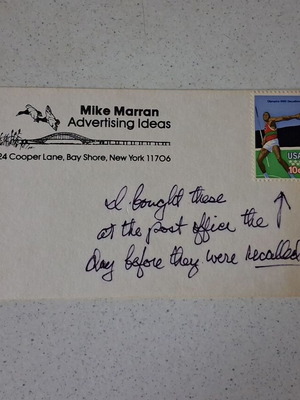 Mike Marran
Advertising Ideas
24 Cooper Lane, Bay Shore, New York 11706
USA
10c
I bought these
at the post office the
day before they were recalled